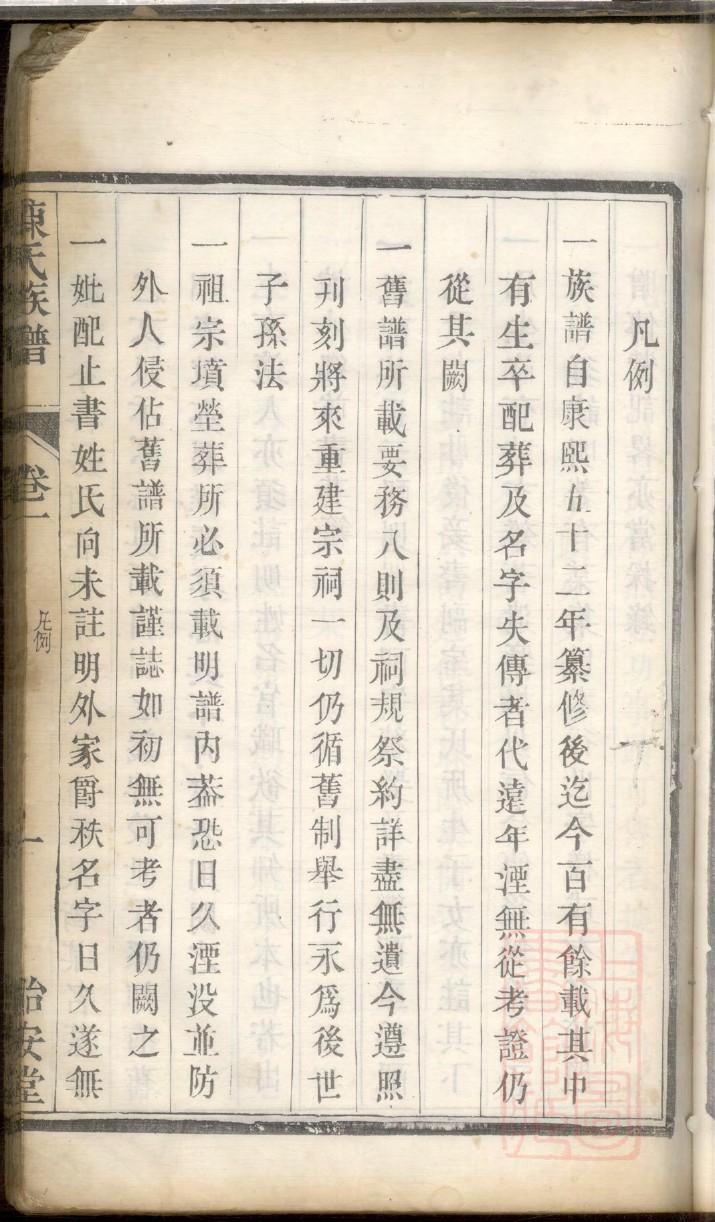 凡例
一族譜自康熙五十二年纂修後迄今百有餘載其中
有生卒配葬及名字失傳者代遠年湮無從考證仍
從其闕
一舊譜所載要務八則及祠規祭約詳盡無遺今遵照
刋刻將來重建宗祠一切仍循舊制舉行永爲後世
子孫法
一祖宗墳塋葬所必須載明譜內葢恐日久湮没並防
外人侵佔舊譜所載謹誌如初無可考者仍闕之
一妣配止書姓氏向未註明外家爵秩名字日久遂無
陳氏族譜
卷一
凡例
一
怡安堂